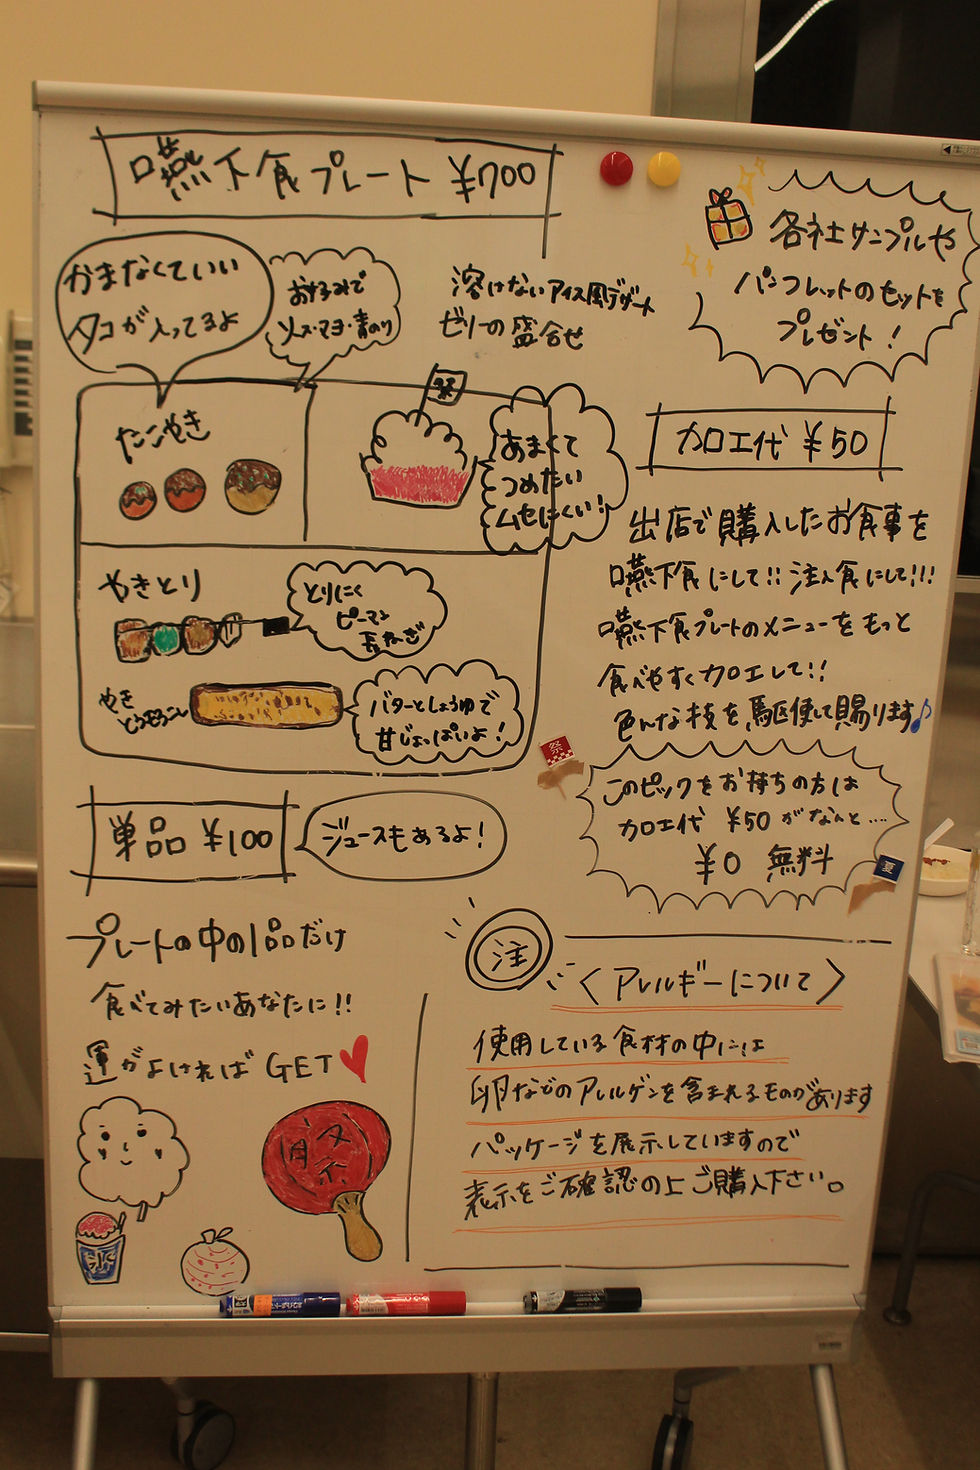 嚥下食プレート ¥700
かまなくていい
タコが入ってるよ
おこのみで
ソース・マヨ・青のり
溶けないアイス風デザート
ゼリーの盛合せ
祭
たこやき
あまくて
つめたい
ムセにくい!
やきとり
とりにく
ピーマン
長ねぎ
やき
とうもろこし
バターとしょうゆで
甘じょっぱいよ!
単品 ¥100
ジュースもあるよ!
プレートの中の1品だけ
食べてみたいあなたに!!
運がよければ GET
氷
祭
各社サンプルや
パンフレットのセットを
プレゼント!
加工代 ¥50
出店で購入したお食事を
嚥下食にして!! 注入食にして!!!
嚥下食プレートのメニューをもっと
食べやすく加工して!!
色んな技を駆使して賜ります♪
祭
このピックをお持ちの方は
加工代 ¥50がなんと....
¥0 無料
夏
注
〈アレルギーについて〉
使用している食材の中には
卵などのアレルゲンを含まれるものがあります
パッケージを展示していますので
表示をご確認の上ご購入下さい。